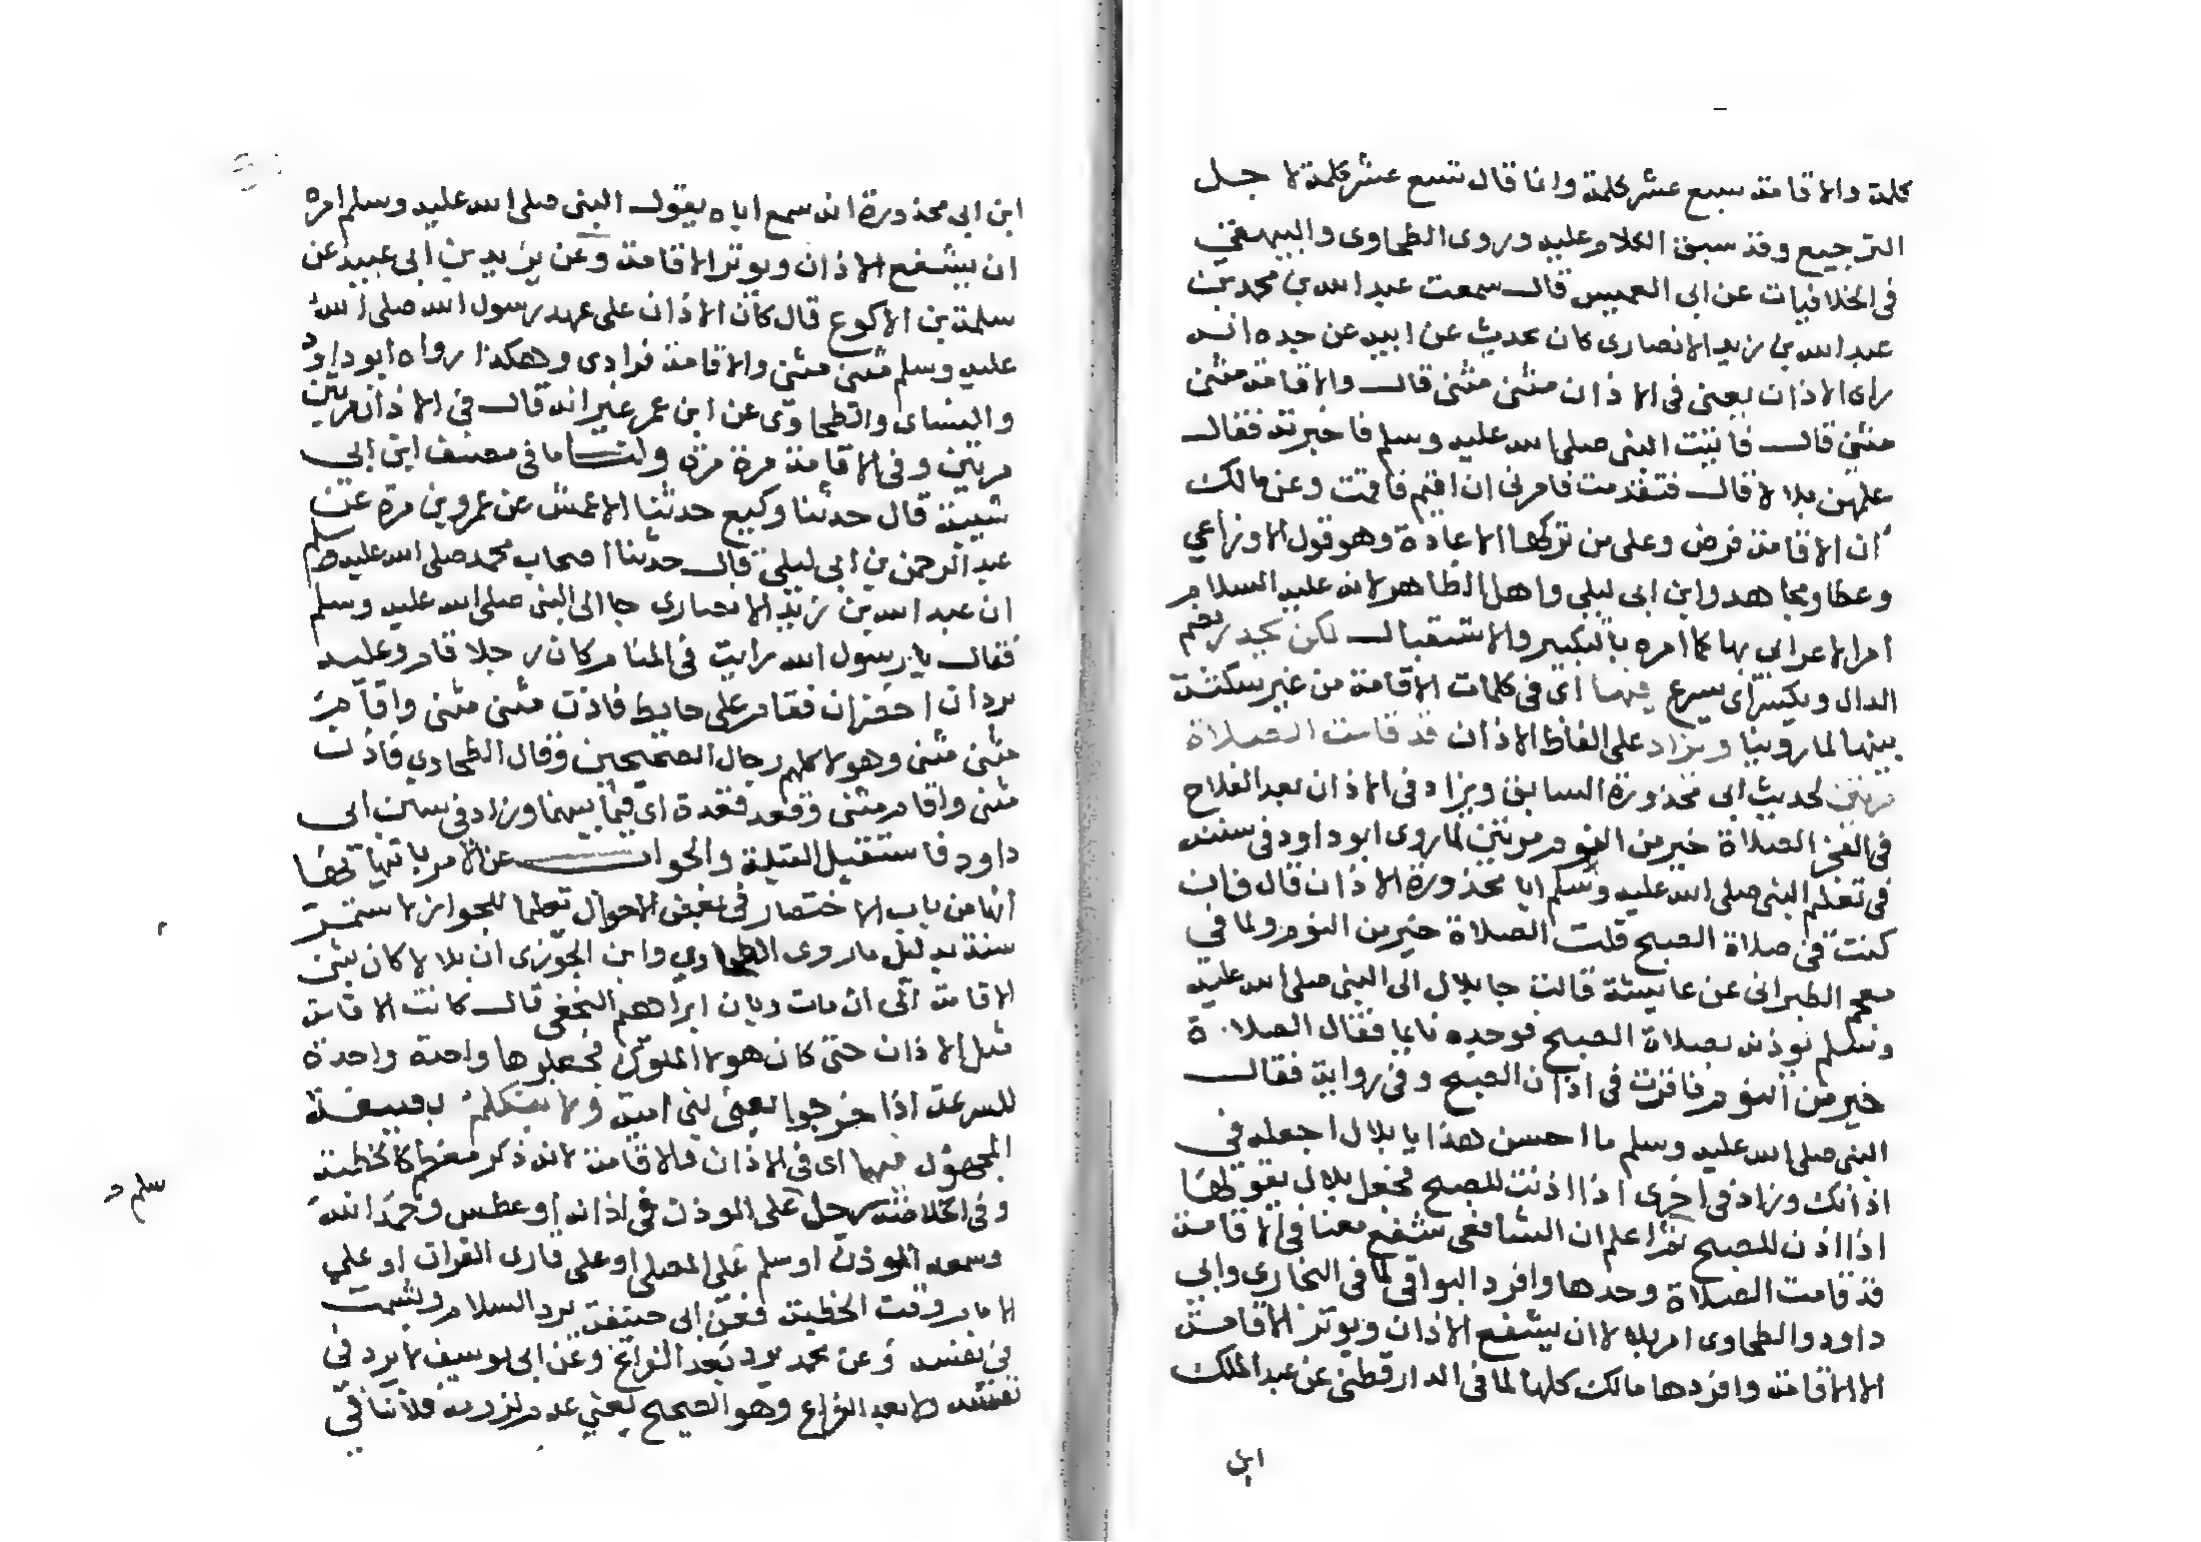 كلمة والاقامة سبع عشر كلمة وانما قال تسع عشر كلمة لا جل
الترجيع وقد سبق الكلام عليه وروى الطحاوى والبيهقي
فى الخلافيات عن ابى العميس قال سمعت عبد الله بن محمد بن
عبد الله بن زيد الانصارى كان يحدث عن ابيه عن جده انه
راى الاذان يعنى فى الاذان مثنى مثنى قال والاقامة مثنى
مثنى قال فاتيت النبى صلى الله عليه وسلم فاخبرته فقال
علمهن بلالا قال فتقدمت فامرنى ان اقيم فاقمت وعن مالك
ان الاقامة فرض وعلى من تركها الاعادة وهو قول الاوزاعي
وعطا ومجاهد وابن ابى ليلى واهل الظاهر لانه عليه السلام
امر الاعرابى بها كما امره بالتكبير والاستقبال لكن يحدر بضم
الدال وبكسر اى يسرع فيها اى فى كلمات الاقامة من غير سكتة
بينها لما روينا ويزاد على الفاظ الاذان قد قامت الصلاة
مرتين لحديث ابى محذورة السابق ويزاد فى الاذان بعد الفلاح
فى الفجر الصلاة خير من النوم مرتين لما روى ابو داود فى سننه
فى تعليم النبى صلى الله عليه وسلم ابا محذورة الاذان قال فان
كنت فى صلاة الصبح قلت الصلاة خير من النوم ولما في
معجم الطبرانى عن عايشة قالت جا بلال الى النبى صلى الله عليه
وسلم يوذنه بصلاة الصبح فوجده نايما فقال الصلاة
خير من النوم فاقرت فى اذان الصبح وفى رواية فقال
النبى صلى الله عليه وسلم ما احسن هذا يا بلال اجعله في
اذانك وزاد فى اخرى اذا اذنت للصبح فجعل بلال يقولها
اذا اذن للصبح ثم اعلم ان الشافعى شفع معنا فى الاقامة
قد قامت الصلاة وحدها وافرد البواقى لما فى البخارى وابي
داود والطحاوى امر بلال ان يشفع الاذان ويوتر الاقامة
الا الاقامة وافردها مالك كلها لما فى الدارقطنى عن عبد الملك
ابن
ابن ابى محذورة انه سمع اباه يقول النبى صلى الله عليه وسلم امره
ان يشفع الاذان ويوتر الاقامة وعن يزيد بن ابى عبيد عن
سلمة بن الاكوع قال كان الاذان على عهد رسول الله صلى الله
عليه وسلم مثنى مثنى والاقامة فرادى وهكذا رواه ابو داود
والنساى والطحاوى عن ابن عمر غير انه قال فى الاذان مرتين
مرتين وفى الاقامة مرة مرة ولنا ما فى مصنف ابن ابى
شيبة قال حدثنا وكيع حدثنا الاعمش عن عمرو بن مرة عن
عبد الرحمن بن ابى ليلى قال حدثنا اصحاب محمد صلى الله عليه وسلم
ان عبد الله بن زيد الانصارى جا الى النبى صلى الله عليه وسلم
فقال يا رسول الله رايت فى المنام كان رجلا قام وعليه
بردان اخضران فقام على حايط فاذن مثنى مثنى واقام
مثنى مثنى وهولا كلهم رجال الصحيحين وقال الطحاوي فاذن
مثنى واقام مثنى وقعد قعدة اى فيما بينهما وزاد فى سنن ابى
داود فاستقبل القبلة والجواب عن الامر بايتارها
انها من باب الاختصار فى بعض الاحوال تعليما للجواز لا ستمر
سنة بدليل ما روى الطحاوي وابن الجوزى ان بلالا كان يثنى
الاقامة الى ان مات وبان ابراهيم النخعى قال كانت الاقامة
مثل الاذان حتى كان هولا الملوك فجعلوها واحدة واحدة
للسرعة اذا خرجوا يعنى بنى امية ولا يتكلم بصيغة
المجهول فيهما اى فى الاذان والاقامة لانه ذكر معظم كالخطبة
وفى الخلاصة رجل على الموذن فى اذانه او عطس وحمد الله
وسمعه الموذن او سلم على المصلى او على قارى القران او على
الامام وقت الخطبة فعن ابى حنيفة يرد السلام ويشمت
فى نفسه وعن محمد يرد بعد الفراغ وعن ابى يوسف لا يرد فى
نفسه ولا بعد الفراغ وهو الصحيح يعنى عدم لزومه فلا ينافى
سلم صح